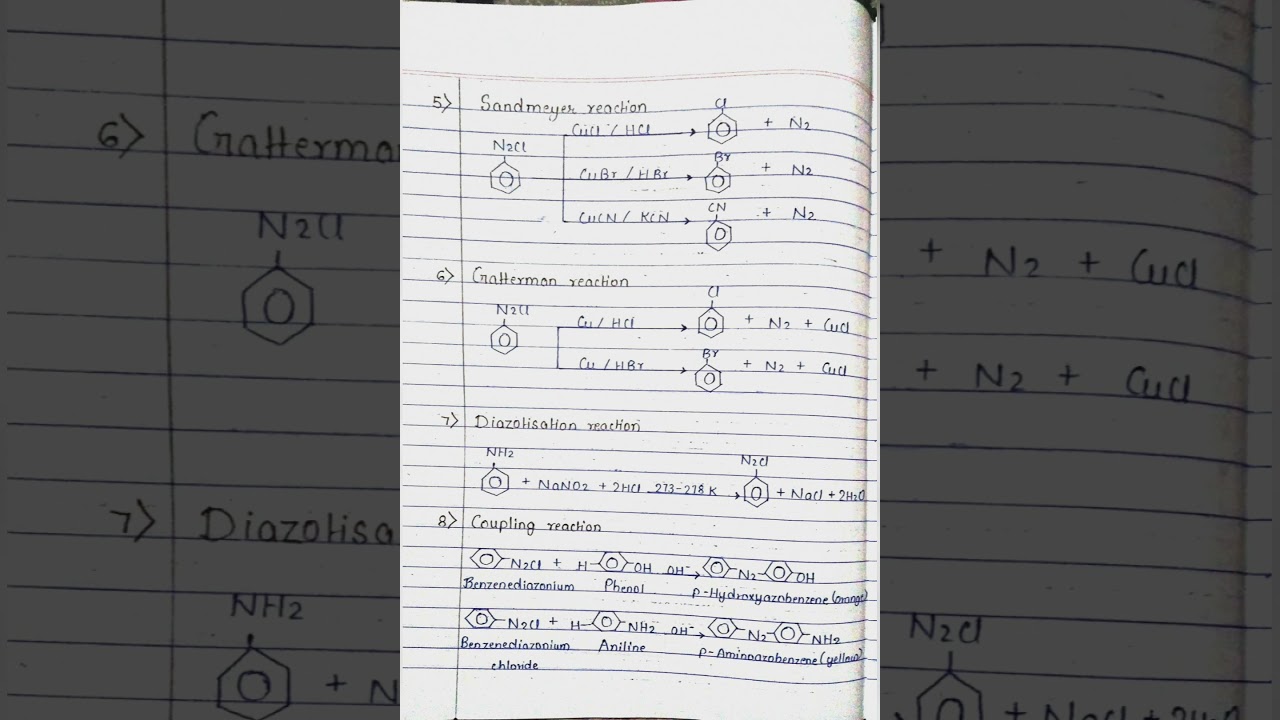 5> Sandmeyer reaction
Cl
CuCl / HCl + N2
N2Cl
Br
CuBr / HBr + N2
CN
CuCN / KCN + N2
6> Gatterman reaction
Cl
N2Cl
Cu / HCl + N2 + CuCl
Br
Cu / HBr + N2 + CuCl
7> Diazotisation reaction
NH2 N2Cl
+ NaNO2 + 2HCl 273-278 K + NaCl + 2H2O
8> Coupling reaction
N2Cl + H OH OH- N2 OH
Benzenediazonium Phenol p-Hydroxyazobenzene (orange)
N2Cl + H NH2 OH- N2 NH2
Benzenediazonium Aniline p-Aminoazobenzene (yellow)
chloride
6> Gatterma
N2Cl
+ N2 + CuCl
+ N2 + CuCl
7> Diazotisa
NH2
+ N
N2Cl
+ NaCl + 2H2O